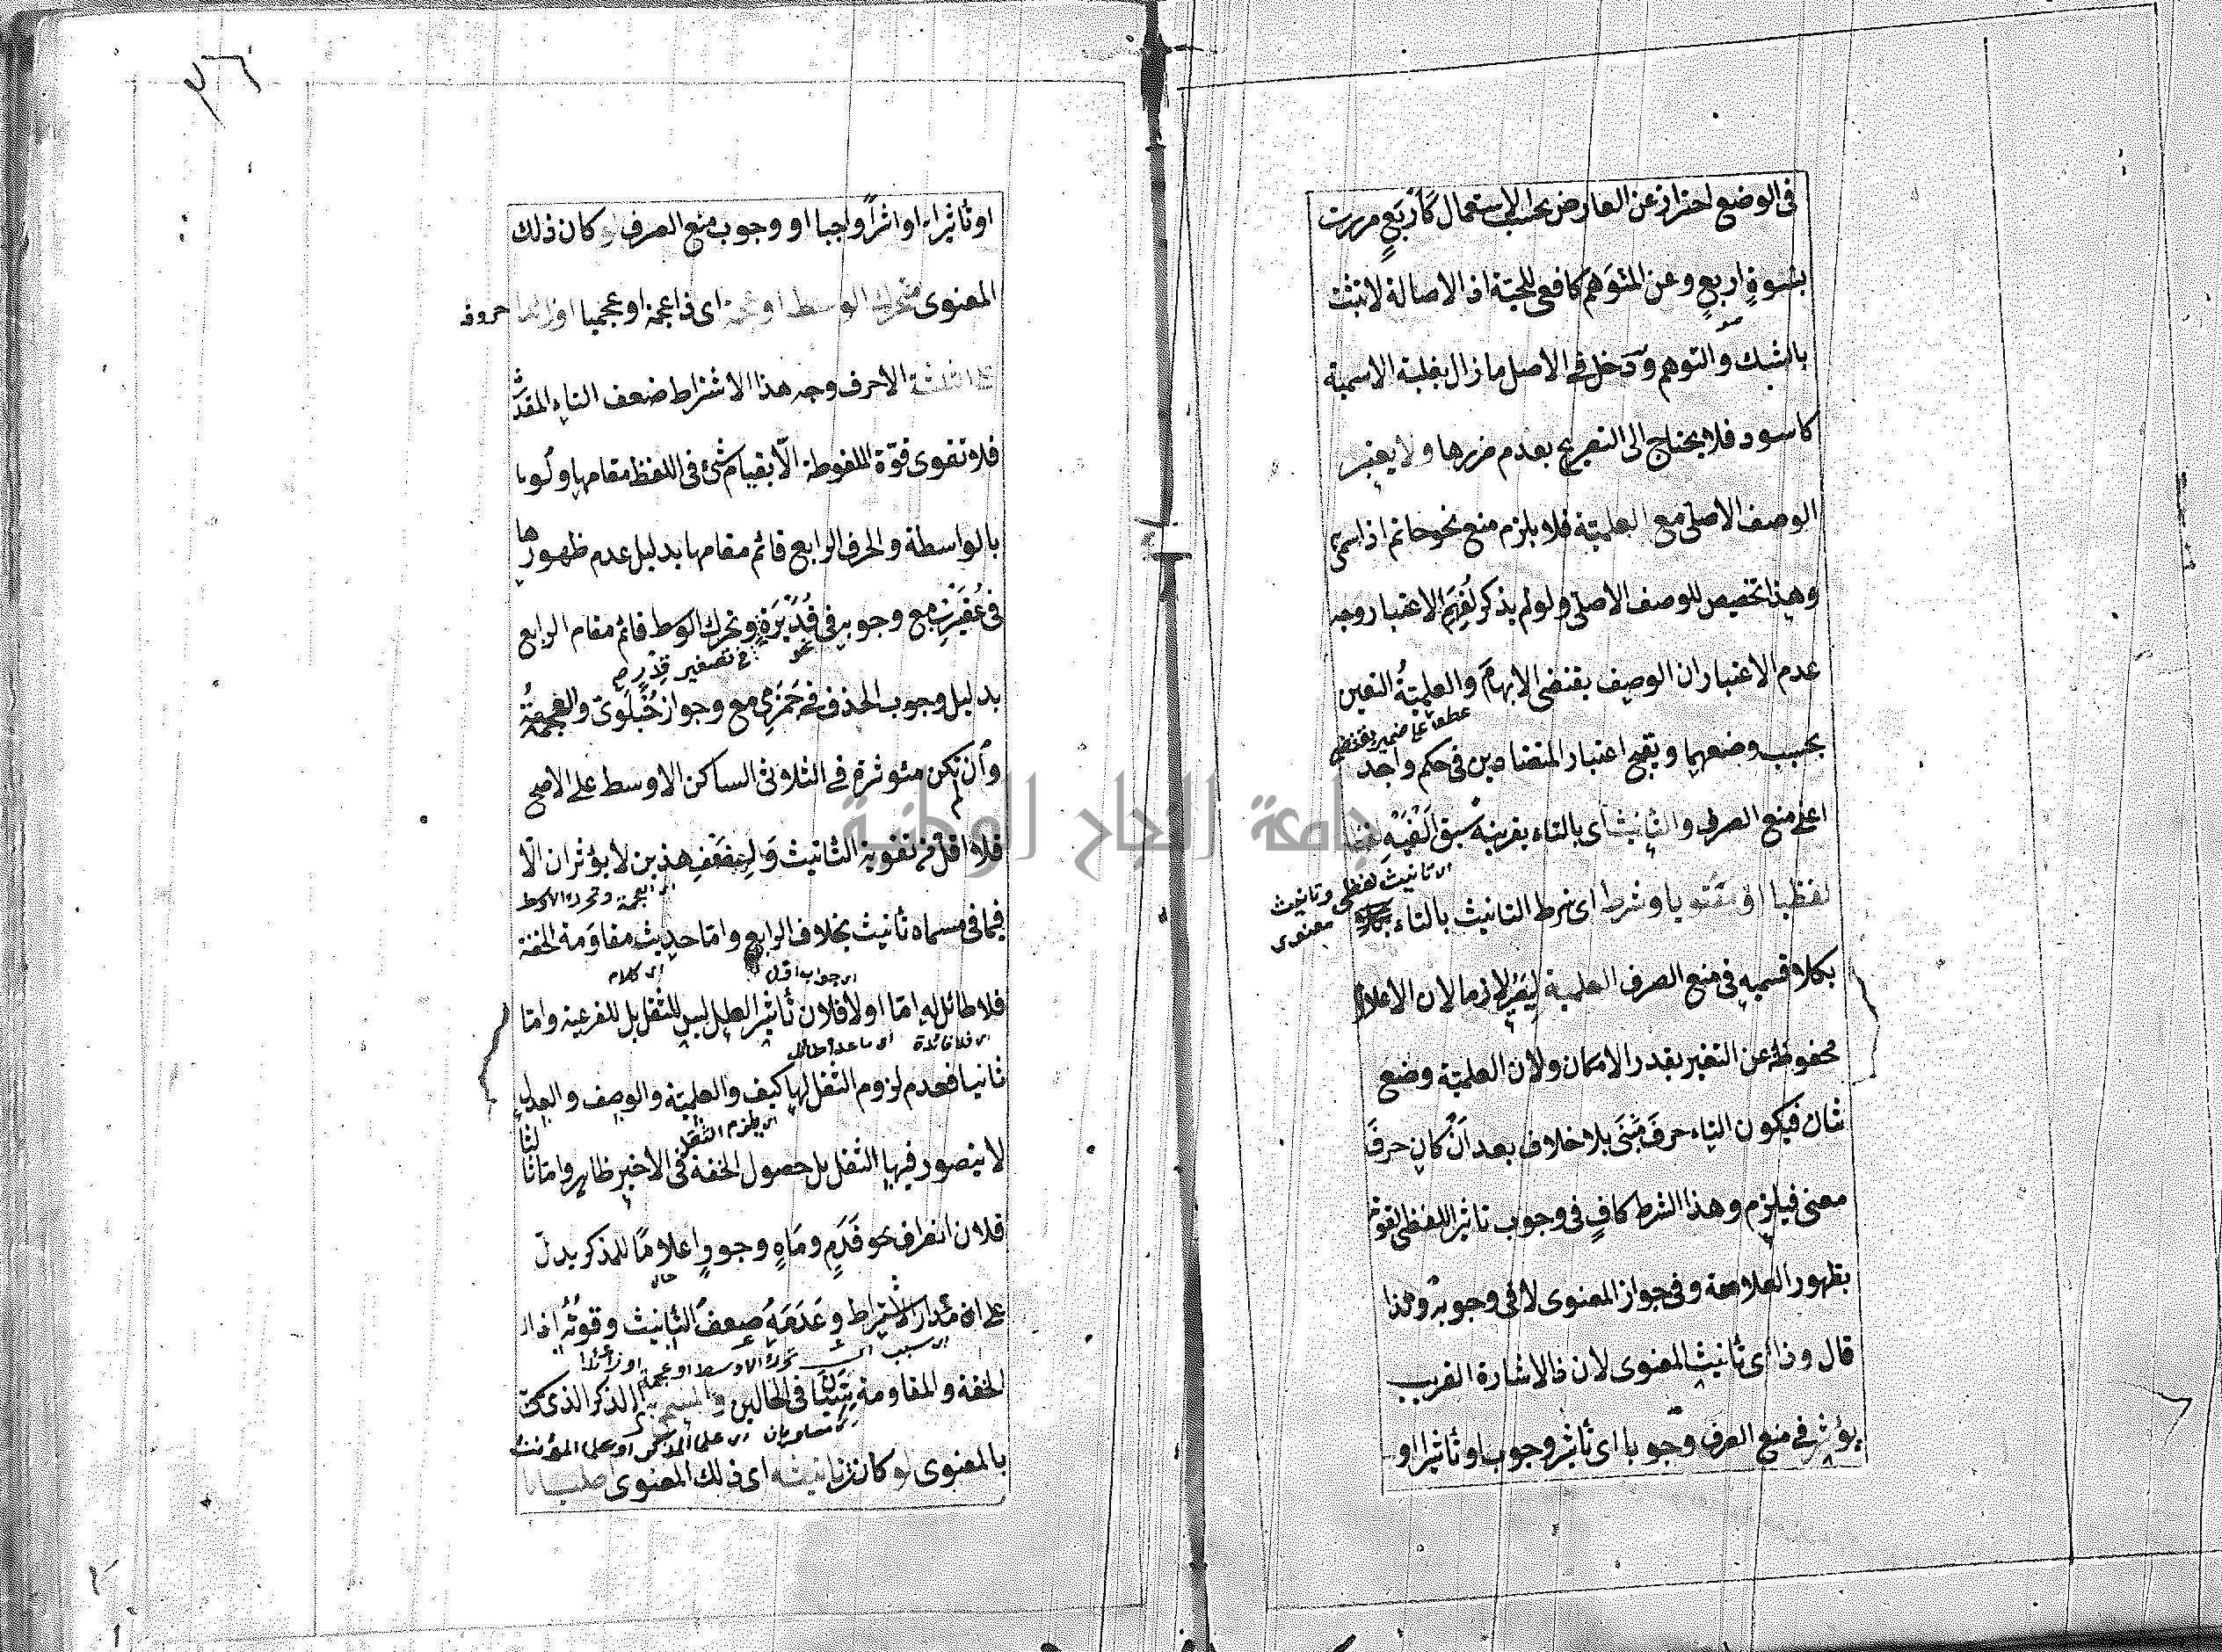 فى الوضع احتراز عن العارض بحسب الاستعمال كاربع مررت
بنسوة اربع وعن المتوهم كافعى للحية اذ الاصالة لا تثبت
بالشك والتوهم ودخل فى الاصل ما زال بغلبة الاسمية
كاسود فلا يحتاج الى التصريح بعدم ضررها ولا يعتبر
الوصف الاصلى مع العلمية فلا يلزم منع نحو حاتم اذا سمى
وهذا تخصيص للوصف الاصلى ولو لم يذكر لفهم الاعتبار وجه
عدم الاعتبار ان الوصف يقتضى الابهام والعلمية التعين
عطف على ضمير يقتضى
بحسب وضعهما ويقبح اعتبار المتضادين فى حكم واحد
اعنى منع الصرف والتانيث اى بالتاء بقرينة سبق الفيه
لفظيا او معنويا وشرط اى شرط التانيث بالتاء
اى تانيث لفظى وتانيث معنوى
بكلا قسميه فى منع الصرف العلمية ليصير لازما لان الاعلام
محفوظة عن التغير بقدر الامكان ولان العلمية وضع
ثان فيكون التاء حرف مبنى بلا خلاف بعد ان كان حرف
معنى فيلزم وهذا الشرط كاف فى وجوب تاثير اللفظى لقوته
بظهور العلامة وفى جواز المعنوى لا فى وجوبه ولذا
قال وذا اى تانيث المعنوى لان ذا لاشارة القريب
يؤثر فى منع الصرف وجوبا اى تاثير وجوب او تاثيرا او
٣٦
او تاثيرا او اثرا واجبا او وجوب منع الصرف لو كان ذلك
المعنوى متحرك الوسط او عجمة اى ذا عجمة او عجميا او زائدا حروفه
على الثلثة الاحرف وجه هذا الاشتراط ضعف التاء المقدر
فلا تقوى قوة الملفوظة الا بقيام شئ فى اللفظ مقامها ولو
بالواسطة والحرف الرابع قائم مقامها بدليل عدم ظهورها
فى عقيرب مع وجوبه فى قديرة وتحرك الوسط قائم مقام الرابع
نحو فى تصغير قدر
بدليل وجوب الحذف فى جمزى مع وجواز حبلوى والعجمة
وان لم تكن مؤثرة فى الثلاثى الساكن الاوسط على الاصح
فلا اقل من تقوية التانيث ولضعف هذين لا يؤثران الا
اى العجمة وتحرك الاوسط
فيما فى مسماه تانيث بخلاف الرابع واما حديث مقاومة الخفة
اى جواب اول اى كلام
فلا طائل له اما اولا فلان تاثير العلل ليس للثقل بل للفرعية واما
اى فلا فائدة
ثانيا فعدم لزوم الثقل لها كيف والعلمية والوصف والعدل
اى يلزم الثقل
لا يتصور فيها الثقل بل حصول الخفة فى الاخير ظاهر واما ثالثا
فلان انصراف نحو قدم وماه وجور اعلاما للمذكر يدل
حال
على ان مدار الاشتراط وعدمه ضعف التانيث وقوته اذ
اى سبب اى تحرك الاوسط او عجمة او زائدا
الخفة والمقاومة فى الحالين المذكر الذى
متساويان اى علم المذكر او على المؤنث
بالمعنوى لو كان تانيثه اى ذلك المعنوى
جامعة النجاح الوطنية